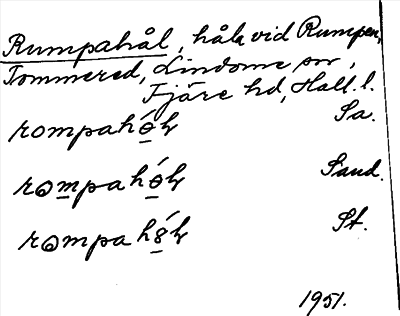 Rumpahål, håla vid Rumpen,
Tommered, Lindome sn,
Fjäre hd, Hall. l.
rompahó̲ḷ Sa.
rɷm̲pahó̲ḷ Sand.
rɷmpahȣ̲́ḷ St.
1951.